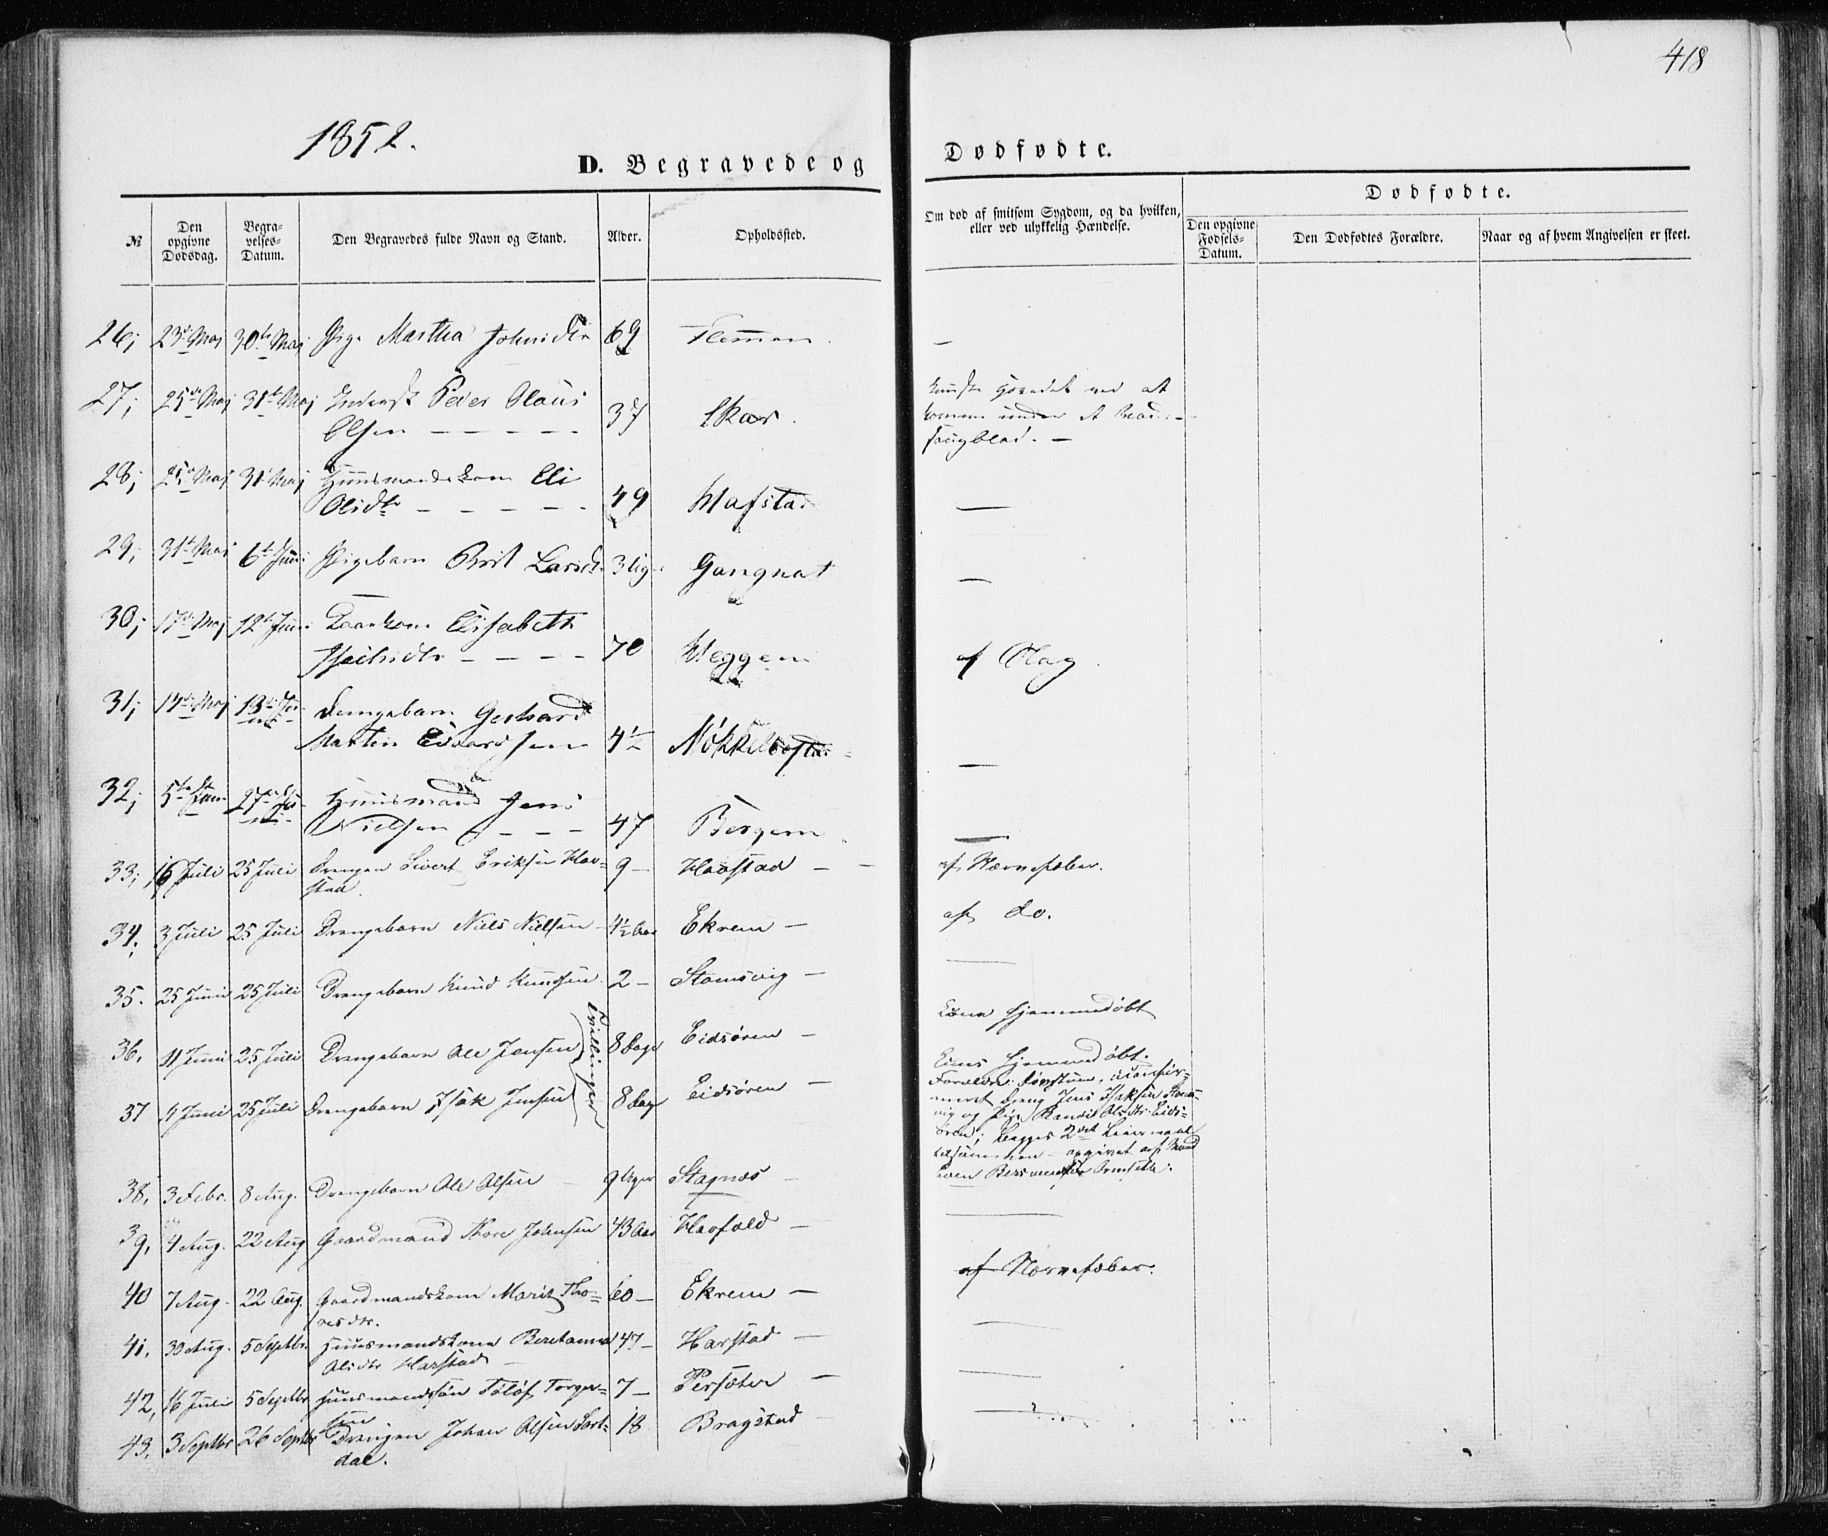 418
1852.
D. Begravede og Dødfødte.
№
Den opgivne Dødsdag.
Begravelses-Datum.
Den Begravedes fulde Navn og Stand.
Alder.
Opholdssted.
Om død af smitsom Sygdom, og da hvilken, eller ved ulykkelig Hændelse.
Dødfødte.
Den opgivne Fødsels-Datum.
Den Dødfødtes Forældre.
Naar og af hvem Angivelsen er skeet.
26; 23 Maj 30te Maj Pige Martha Johnsdtr 69 Flemmen. —
27; 25 Maj 31te Maj Inderst Peder Olaus
Olsen — — — — — 37 Skar.
komme under et
saugblad. —
28; 25 Maj 31 Maj Huusmandskone Eli
Olsdtr — — — — — 49 Hafstad —
29; 31te Maj 6te Juni Pigebarn Brit Larsdtr Gangnat —
30; 17de Maj 12te Juni Elisabeth
— — — — 70 Heggem af Slag.
31; 14de Maj 13de Juni Drengebarn Gerhard
Martin Edvardsen 4½ —
32; 5te Juni 27de Juni Huusmand Jens
Nielsen — — — 47 Bergem —
33; 16 Juli 25 Juli Drengen Sivert Eriksen Hav-
stad. 9 — Havstad — af Nervefeber.
34. 3 Juli 25 Juli Drengebarn Niels Nielsen 4½ Aar Ekrem — af do.
35. 25 Juni 25 Juli Drengebarn Knud Knudsen 2 — Stomsvig — —
36. 4 Juni 25 Juli Drengebarn Ole Jensen 8 Dage Eidsøren — hjemmedøbt
Tvillinger
37 4 Juni 25 Juli Drengebarn Isak Jensen 8 Dage Eidsøren — hjemmedøbt.
Forældre:
meret Dreng Jens Isaksen Stoms-
vig og Pige Randi Olsdtr Eids-
øren; Begges 2det Leiermaal
opgivet af
38. 3 Febr. 8 Aug. Drengebarn Ole Olsen — 9 Uger Stagnæs — —
39. 4 Aug. 22 Aug Gaardmand Thore Johnsen 43 Aar Havfald — af Nervefeber.
40 7 Aug. 22 Aug. Gaardmandskone Marit Tho-
resdtr. 60 — Ekrem — —
41. 30 Aug. 5 Septbr. Huusmandskone Berethanna
Olsdtr Harstad — 47 — Harstad — —
42, 16 Juli 5 Septbr Huusmandssøn Toløf Torger-
sen 7 — Persæter — —
43. 3 Septbr 26 Septbr Drengen Johan Olsen Sort-
dal. 18 Bragstad —